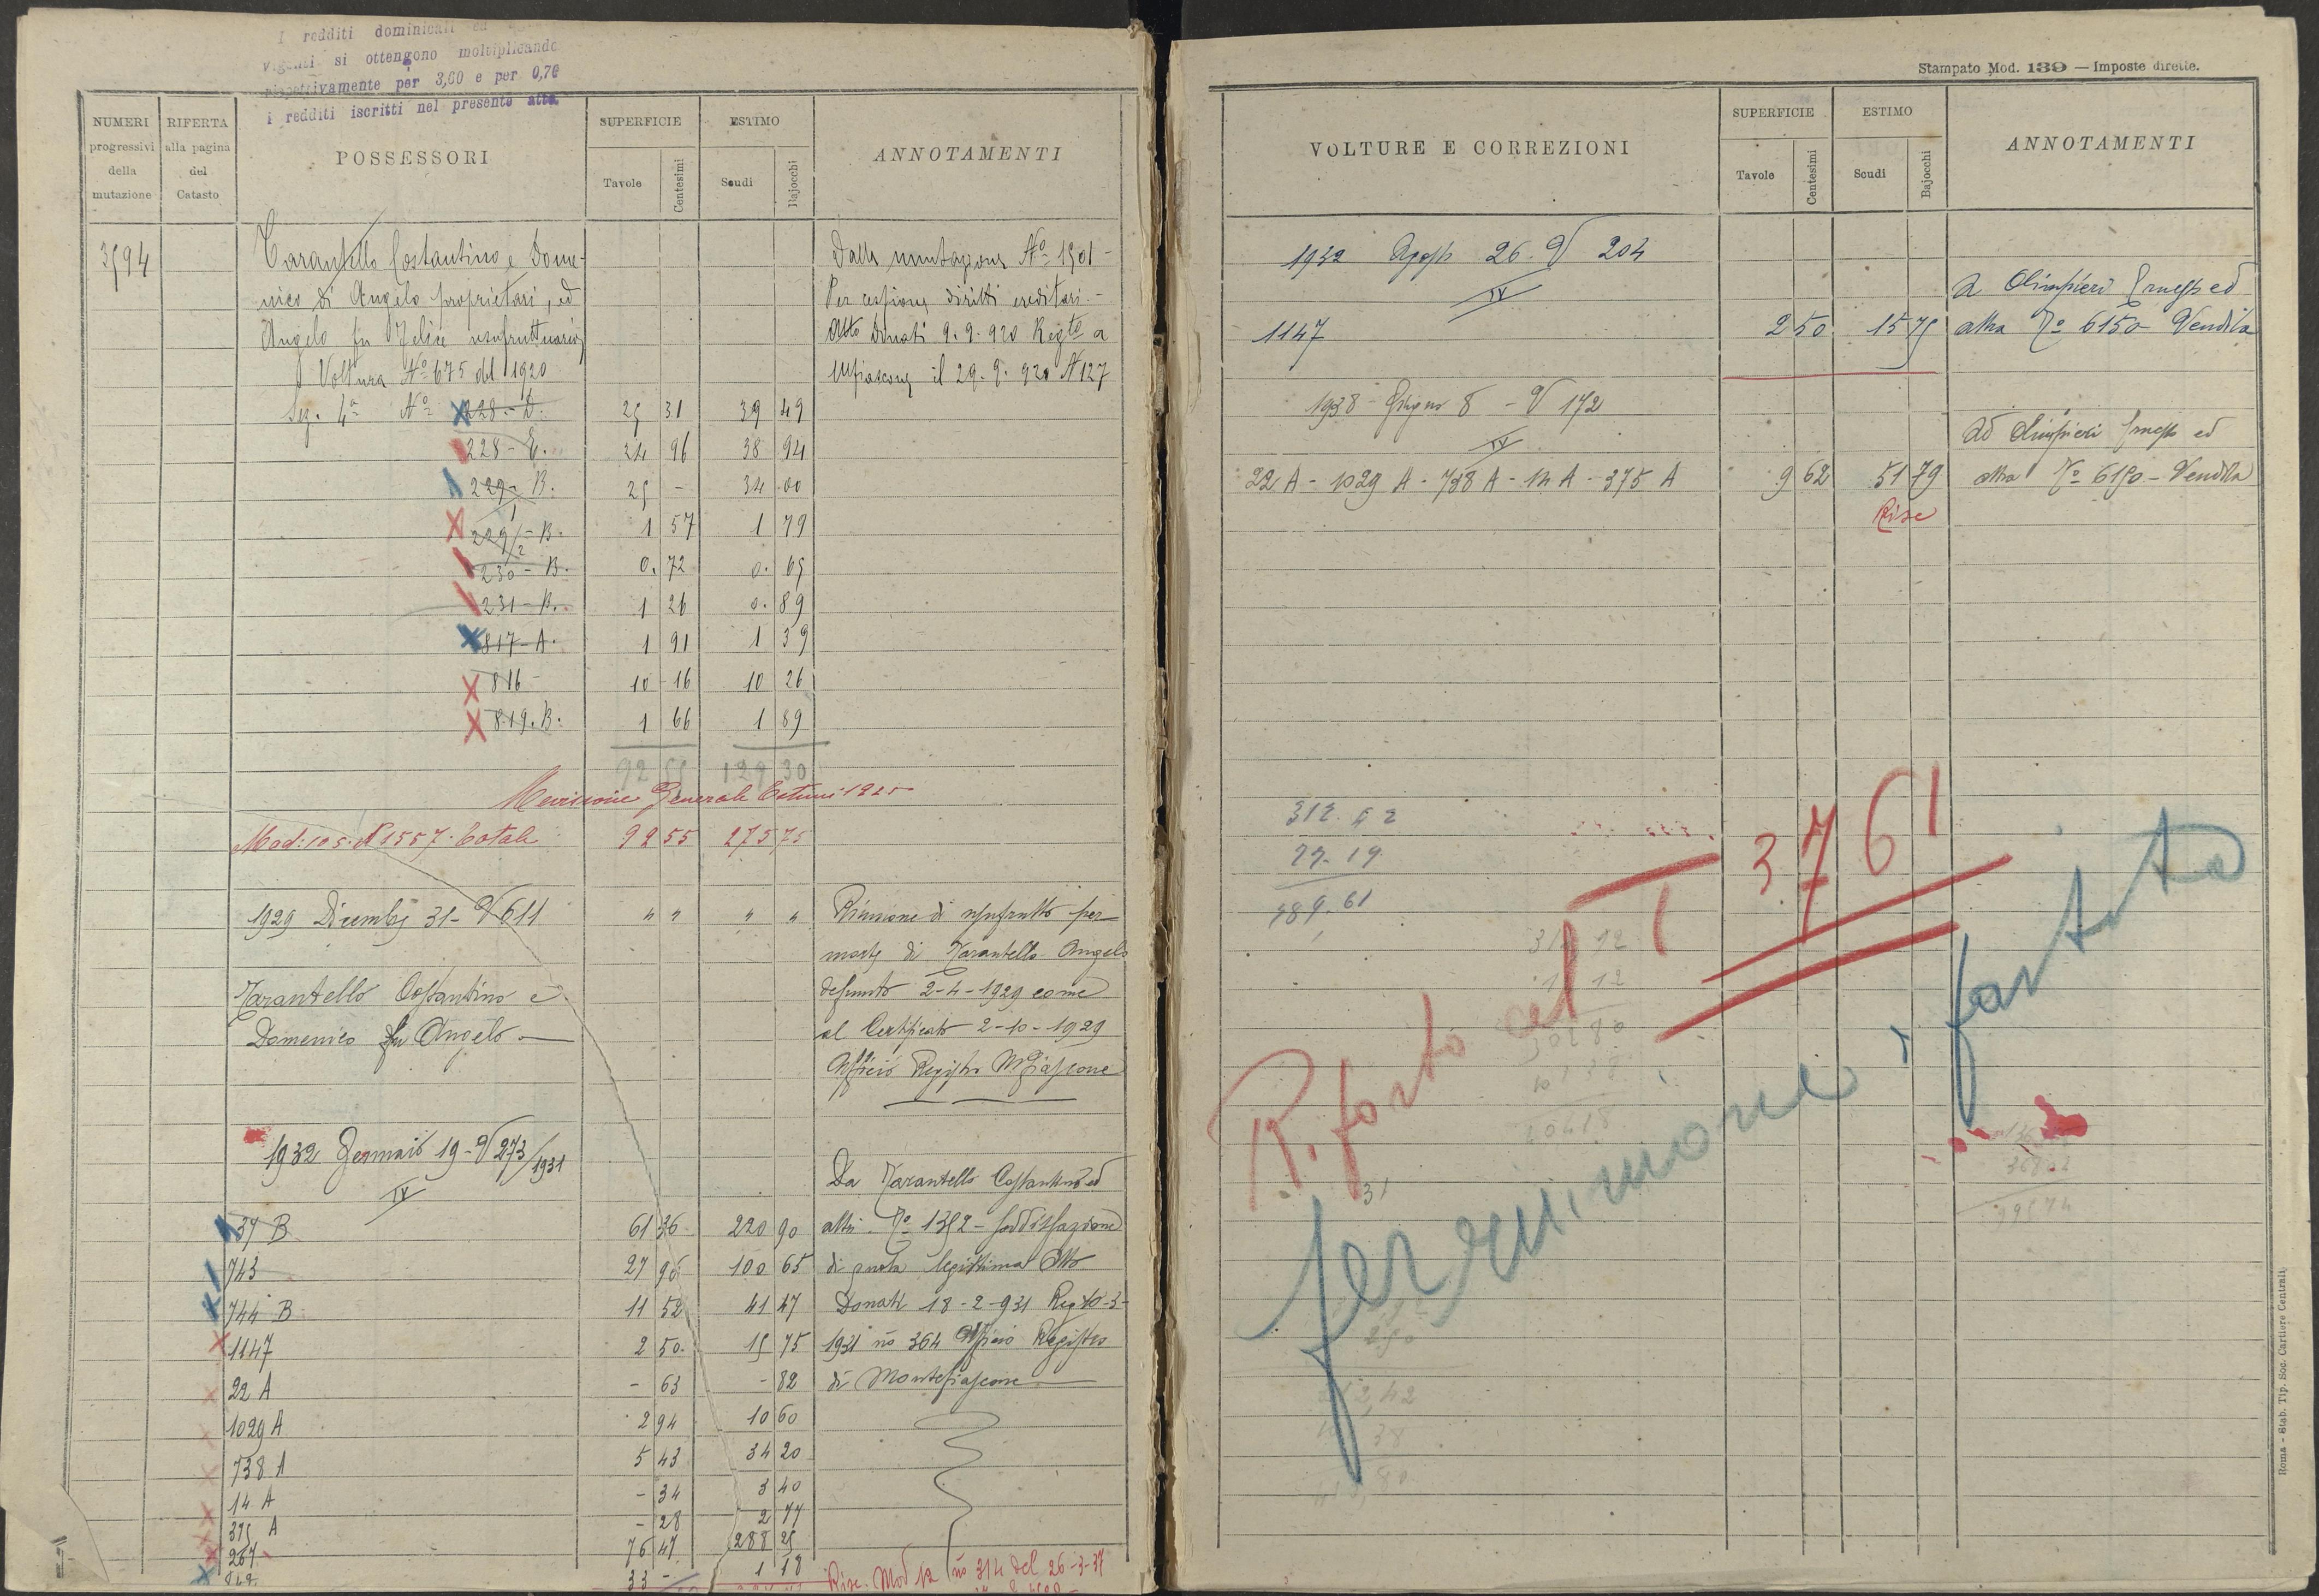 I redditi dominicali ed
vigenti si ottengono moltiplicando
rispettivamente per 3,60 e per 0,70
i redditi iscritti nel presente atto
NUMERI progressivi della mutazione
RIFERTA alla pagina del Catasto
POSSESSORI
SUPERFICIE
Tavole Centesimi
ESTIMO
Scudi Bajocchi
ANNOTAMENTI
3594
Tarantello Costantino e Dome-
nico di Angelo proprietari, ed
Angelo fu Felice usufruttuario
Voltura Nº 675 del 1920
Dalla mutazione Nº 1501 -
Per cessione diritti ereditari -
Atto Donati 9.9.920 Regto a
Mfiascone il 29.9.920 N 127
Sez. 4ª Nº 228 - D. 25 31 39 49
228 - E. 24 96 38 94
229 - B. 25 - 34 00
229/2 - B. 1 57 1 79
230 - B. 0. 72 0. 65
231 - B. 1 26 0. 89
817 - A. 1 91 1 39
816 - 10 16 10 26
819. B. 1 66 1 89
92 55 129 30
Revisione Generale Estimi 1925
Mod: 105. N 1557. Totale 92 55 275 75
1929 Dicembre 31 - V 611 " " " "
Riunione di usufrutto per
morte di Tarantello Angelo
defunto 2-4-1929 come
al Certificato 2-10-1929
Ufficio Registro Mfiascone
Tarantello Costantino e
Domenico fu Angelo
1932 Gennaio 19 - V 273/1931
IV
Da Tarantello Costantino ed
altri Nº 1352 - soddisfazione
di quota legittima Atto
Donati 18-2-931 Reg to -3-
1931 no 364 Ufficio Registro
di Montefiascone
37 B 61 36 220 90
743 27 96 100 65
744 B 11 52 41 47
1147 2 50 15 75
22 A - 63 - 82
1029 A 2 94 10 60
738 A 5 43 34 20
14 A - 34 3 40
375 A - 28 2 77
267 76 47 288 25
33 - 1 18
Rise. Mod 12 no 314 del 26-3-37
Stampato Mod. 139 — Imposte dirette.
VOLTURE E CORREZIONI
SUPERFICIE
Tavole Centesimi
ESTIMO
Scudi Bajocchi
ANNOTAMENTI
1932 Agosto 26. V 204
IV
1147 2 50 15 75
a Olimpieri Ernesto ed
altra Nº 6150 - Vendita
1938 - Giugno 8 - V 172
IV
22 A - 1029 A - 738 A - 14 A - 375 A 9 62 51 79
Ad Olimpieri Ernesto ed
altra Nº 6150 - Vendita
Rise
77.19
489.61
Riporto al T 3761
31
Roma - Stab. Tip. Soc. Cartiere Centrali.